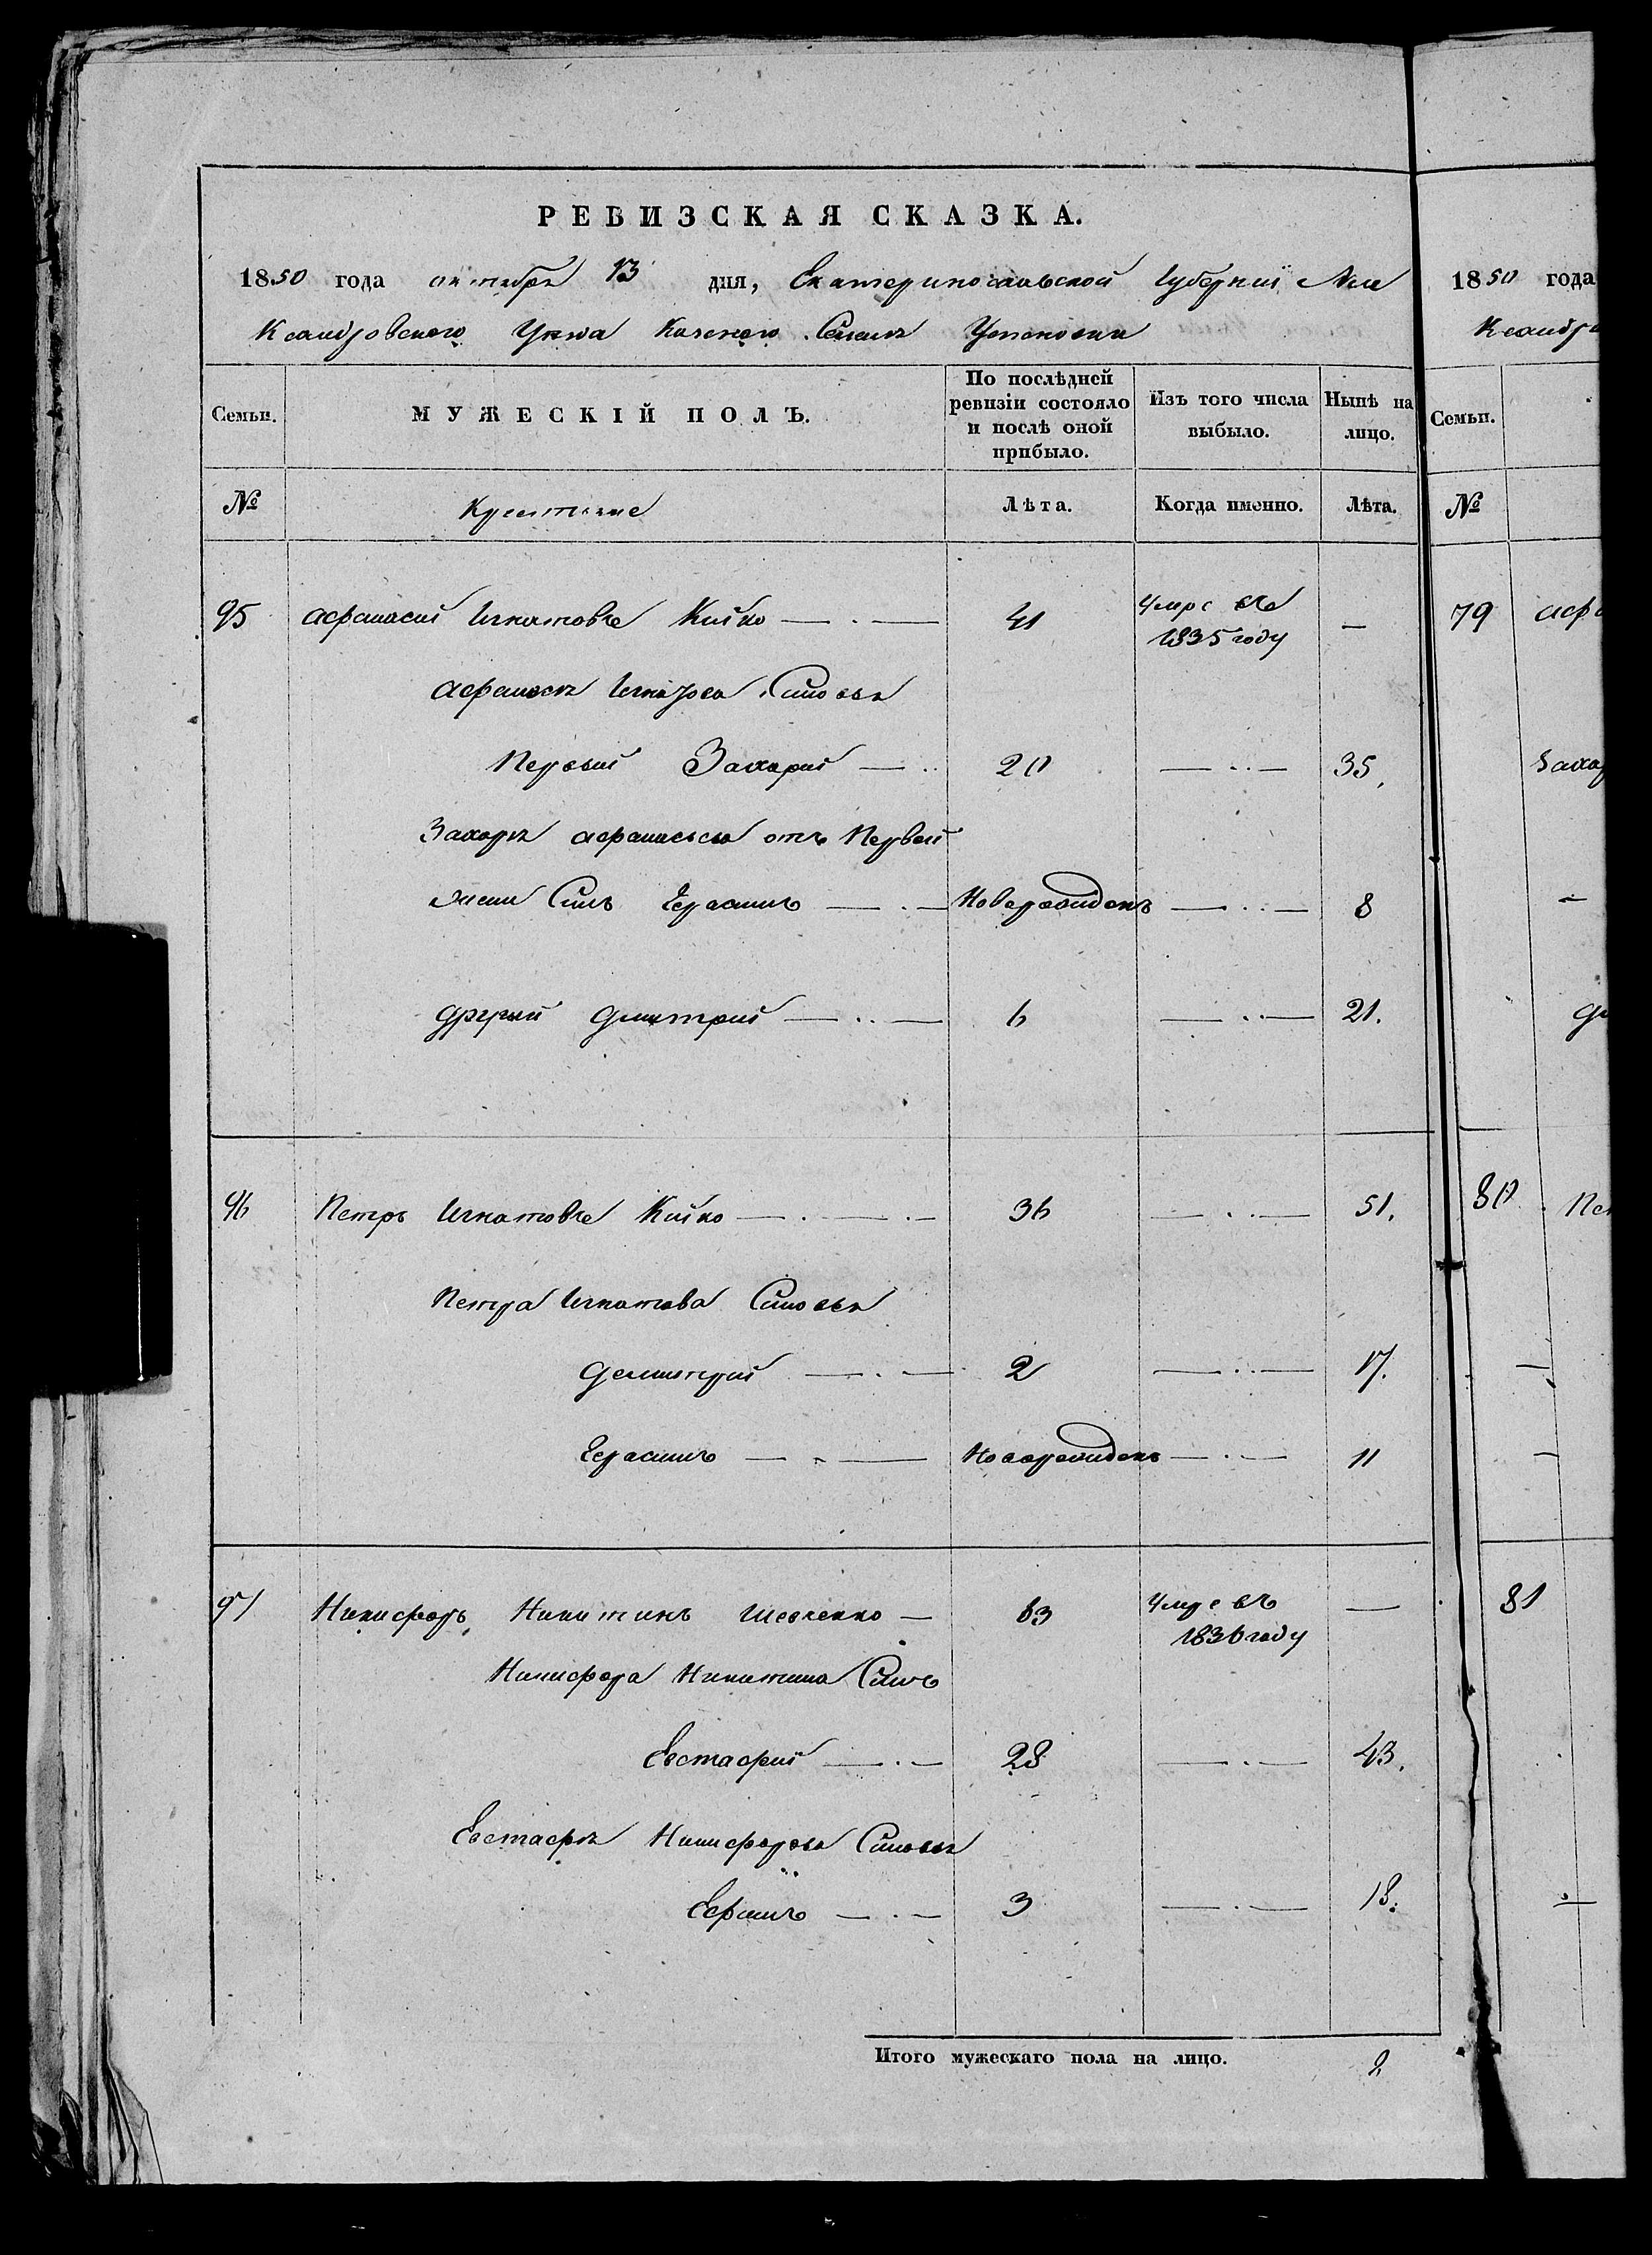 РЕВИЗСКАЯ СКАЗКА.
1850 года октября 13 дня, Екатеринославской Губернии Але
ксандровскаго Уезда Казенного Селения Успеновки
Семьи. МУЖЕСКІЙ ПОЛЪ. По послѣдней ревизіи состояло и послѣ оной прибыло. Изъ того числа выбыло. Нынѣ на лицо.
№ Крестьяне Лѣта. Когда именно. Лѣта.
95 Афанасий Игнатовъ Кийко — . — 41 Умре въ 1835 году —
Афанасия Игнатова Сыновья
Первый Захарий — .. 20 — .. — 35.
Захария Афанасьева отъ Первой
жены Сынъ Герасимъ — . — Новорожденъ — . . — 8
другий Дмитрий — .. — 6 — . . — 21.
96 Петръ Игнатовъ Кийко — . — . — 36 — . . — 51.
Петра Игнатова Сыновья
Демитрий — . — 2 — .. — 17.
Герасимъ — . — Новорожденъ — . — 11
97 Никифоръ Никитинъ Шевченко — 63 Умре въ 1836 году —
Никифора Никитина Сынъ
Евстафий — . — 28 — . — 43.
Евстафия Никифорова Сыновья
Ефимъ — . — 3 — . — 18.
Итого мужескаго пола на лицо. 8
1850 года
Ксандро
Семьи.
№
79 Афа
Захар
—
Дм
80 Пет
—
—
81
—